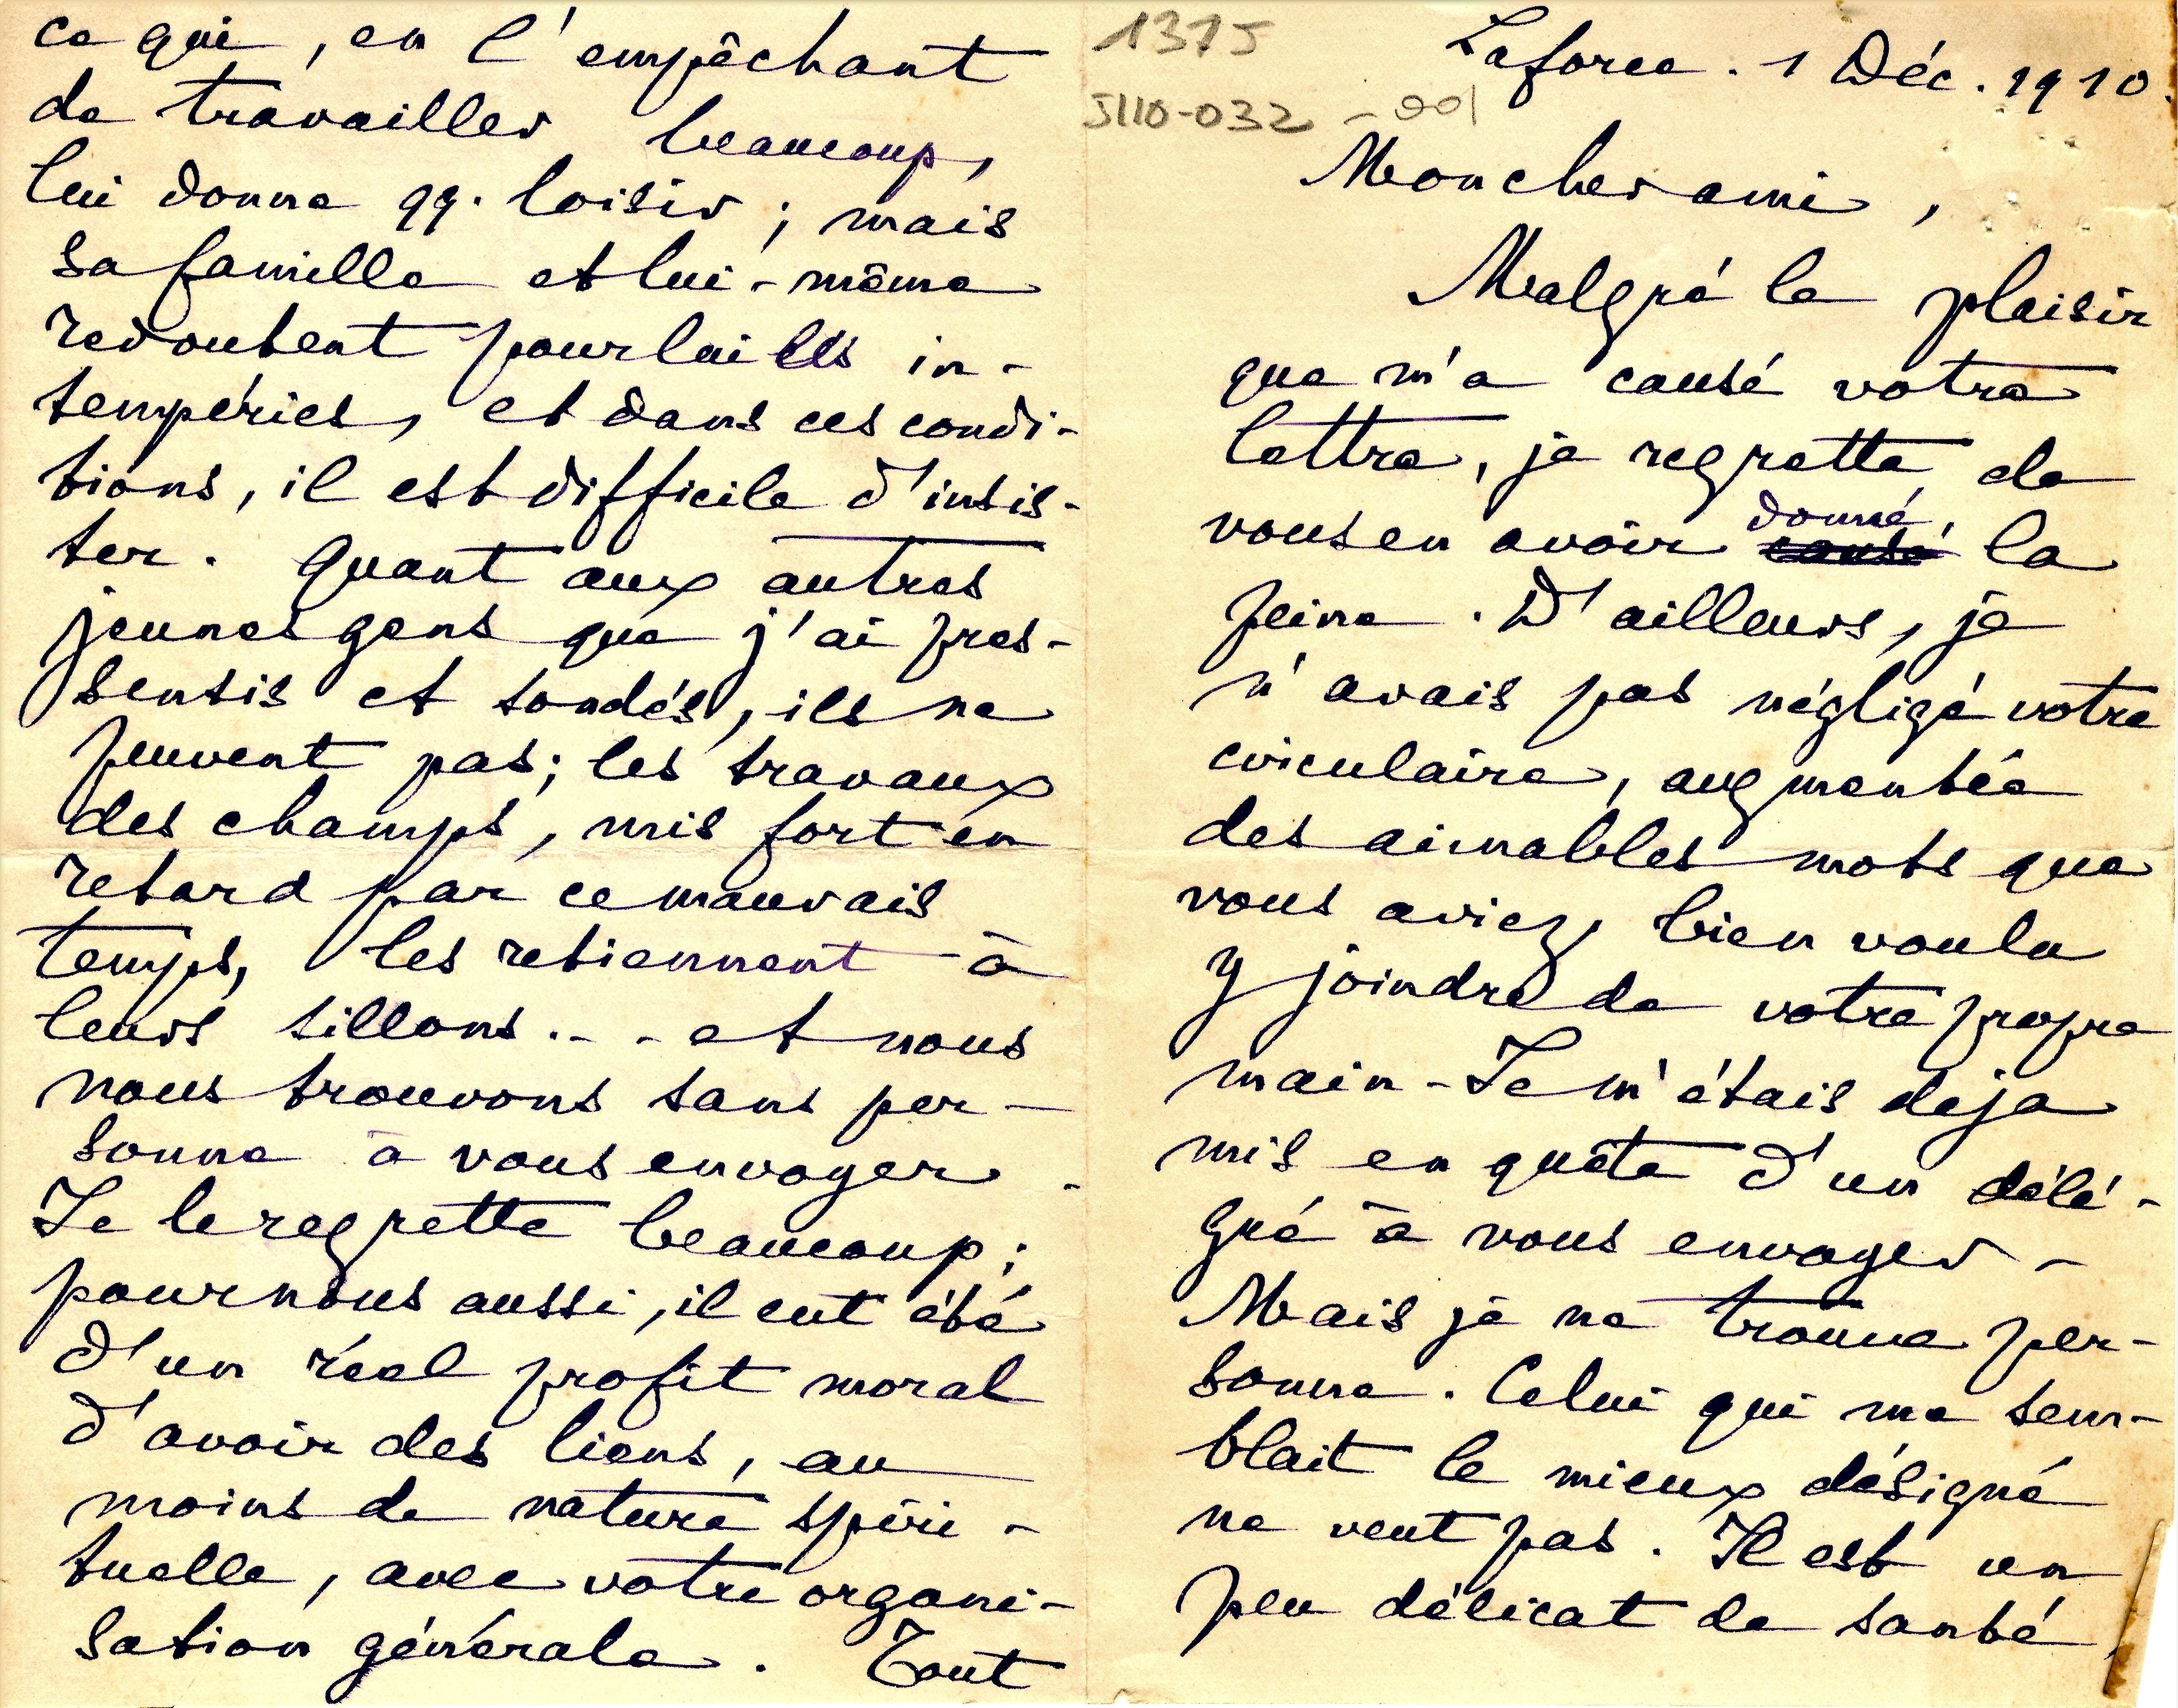 1375
J110-032 - 001
Laforce. 1 Déc. 1910.
Mon cher ami,
Malgré le plaisir
que m'a causé votre
lettre, je regrette de
vous en avoir causé donné la
peine. D'ailleurs, je
n'avais pas négligé votre
circulaire, augmentée
des aimables mots que
vous aviez bien voulu
y joindre de votre propre
main - Je m'étais deja
mis en quête d'un délé-
gué à vous envoyer -
Mais je ne trouve per-
sonne. Celui qui me sem-
blait le mieux désigné
ne veut pas. Il est un
peu délicat de santé,
ce qui, en l'empêchant
de travailler beaucoup,
lui donne qq. loisir; mais
sa famille et lui-même
redoutent pour lui les in-
tempéries, et dans ces condi-
tions, il est difficile d'insis-
ter. Quant aux autres
jeunes gens que j'ai pres-
sentis et sondés, ils ne
peuvent pas; les travaux
des champs, mis fort en
retard par ce mauvais
temps, les retiennent à
leurs sillons... et nous
nous trouvons sans per-
sonne à vous envoyer.
Je le regrette beaucoup;
pour nous aussi, il eut été
d'un réel profit moral
d'avoir des liens, au
moins de nature spiri-
tuelle, avec votre organi-
sation générale. Tout